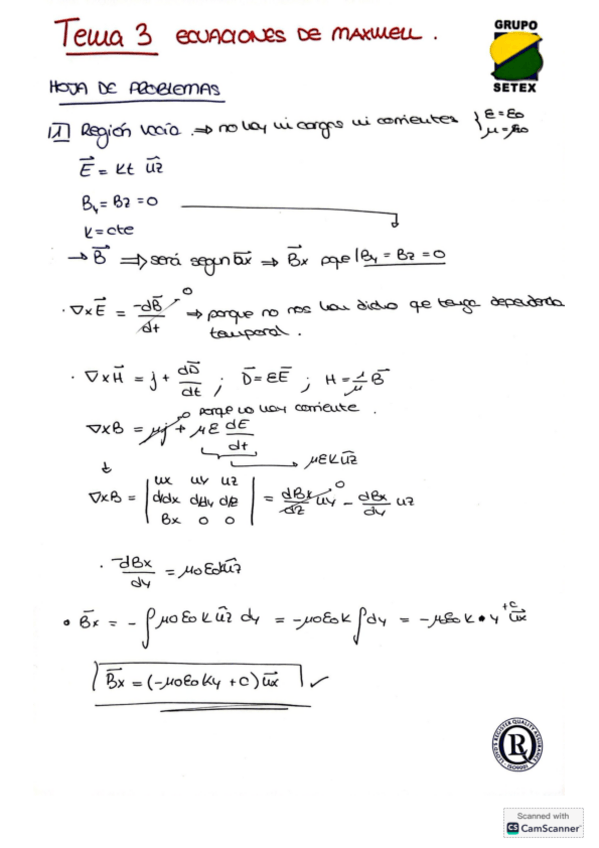 Tema 3 ECUACIONES DE MAXWELL.
GRUPO
SETEX
HOJA DE PROBLEMAS
1) Región vacía. ⇒ no hay ni cargas ni corrientes { ε = ε0
μ = μ0
E = kt uz
By = Bz = 0
k = cte
→ B ⇒ será según ux ⇒ Bx pqe By = Bz = 0
· ∇xE = -dB/dt 0 → porque no nos han dicho que tenga dependencia
temporal.
· ∇xH = j + dD/dt ; D = εE ; H = 1/μ B
0 porque no hay corriente.
∇xB = μj + με dE/dt
→ μεk uz
∇xB = | ux uy uz
d/dx d/dy d/dz
Bx 0 0 | = dBx/dz uy 0 - dBx/dy uz
· -dBx/dy = μ0ε0k uz
• Bx = -∫ μ0ε0k uz dy = -μ0ε0k ∫dy = -μ0ε0k • y +c ux
Bx = (-μ0ε0ky + c) ux ✓
LLOYD'S REGISTER QUALITY ASSURANCE
R
ISO9001
Scanned with
CS CamScanner